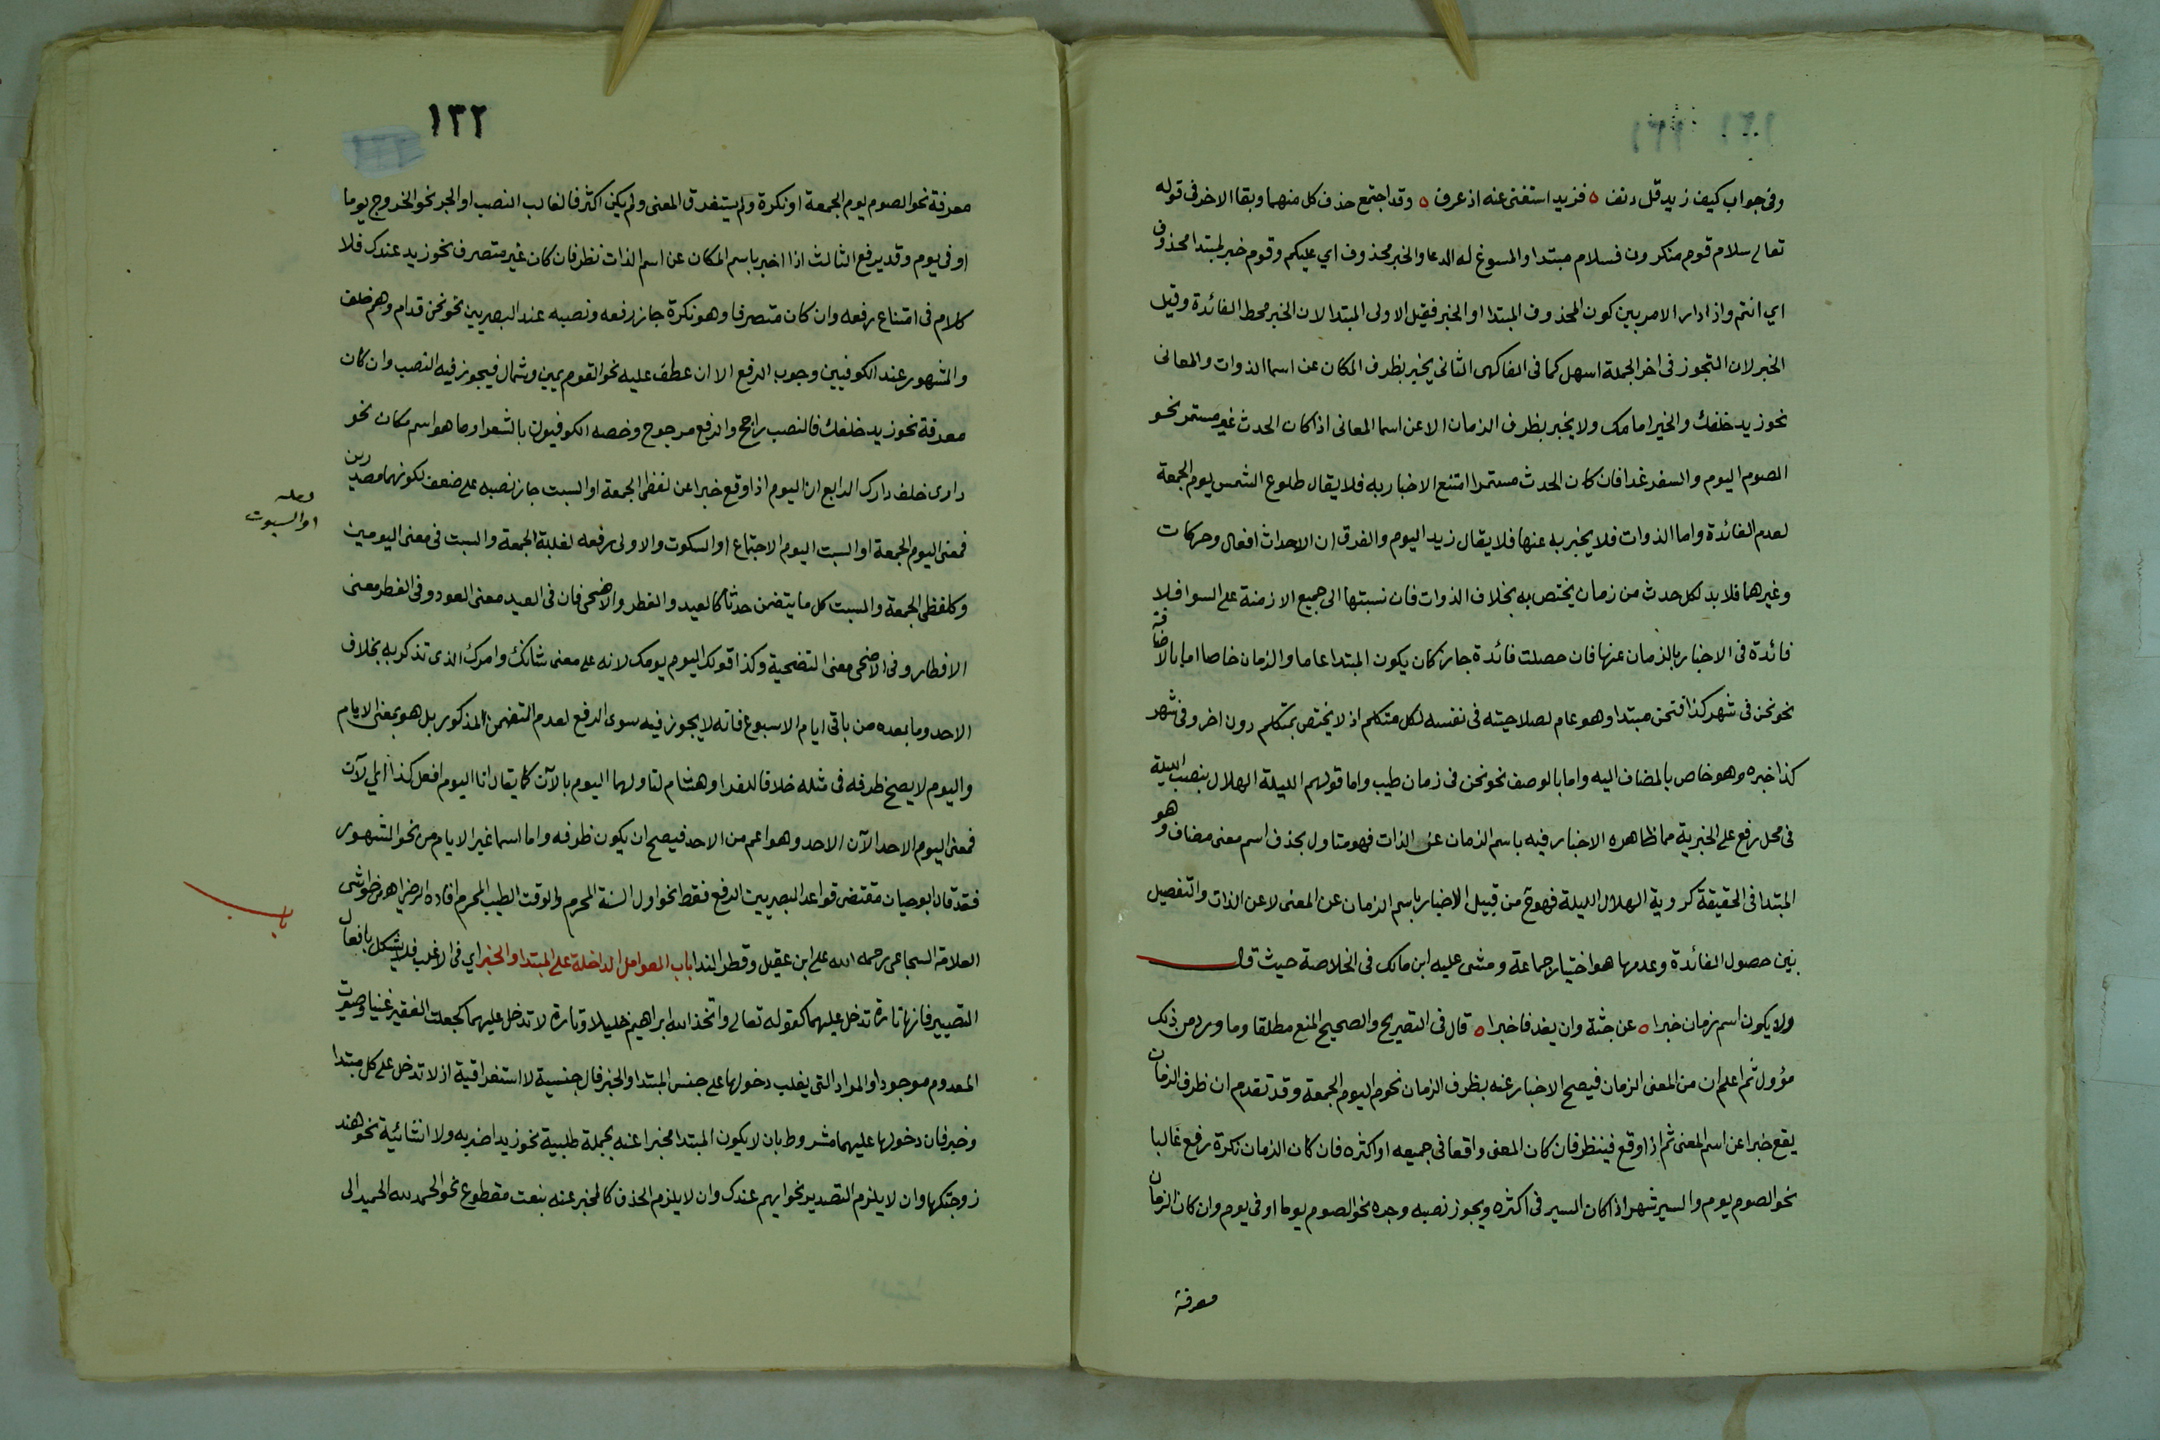 وفى جواب كيف زيد قل دنف ه فزيد استغنى عنه اذ عرف ه وقد اجتمع حذف كل منهما وبقا الاخر فى قوله
تعالى سلام قوم منكرون فسلام مبتدا والمسوغ له الدعا والخبر محذوف اي عليكم وقوم خبر لمبتدا محذوف
اي انتم واذا دار الامر بين كون المحذوف المبتدا او الخبر فقيل الاولى المبتدا لان الخبر محط الفائدة وقيل
الخبر لان التجوز فى اخر الجملة اسهل كما فى الفاكهى الثانى يخبر بظرف المكان عن اسما الذوات والمعانى
نحو زيد خلفك والخير امامك ولا يخبر بظرف الزمان الا عن اسما المعانى اذا كان الحدث غير مستمر نحو
الصوم اليوم والسفر غدا فان كان الحدث مستمرا امتنع الاخبار به فلا يقال طلوع الشمس يوم الجمعة
لعدم الفائدة واما الذوات فلا يخبر به عنها فلا يقال زيد اليوم والفرق ان الاحداث افعال وحركات
وغيرها فلا بد لكل حدث من زمان يختص به بخلاف الذوات فان نسبتها الى جميع الازمنة على السوا فلا
فائدة فى الاخبار بالزمان عنها فان حصلت فائدة جاز كان يكون المبتدا عاما والزمان خاصا اما بالاضافة
نحو نحن فى شهر كذا فنحن مبتدا وهو عام لصلاحيته فى نفسه لكل متكلم اذ لا يختص بمتكلم دون اخر وفى شهر
كذا خبره وهو خاص بالمضاف اليه واما بالوصف نحو نحن فى زمان طيب واما قولهم الليلة الهلال بنصب الليلة
فى محل رفع على الخبرية مما ظاهره الاخبار فيه باسم الزمان عن الذات فهو متاول بحذف اسم معنى مضاف وهو
المبتدا فى الحقيقة كروية الهلال الليلة فهو ح من قبيل الاخبار باسم الزمان عن المعنى لا عن الذات والتفصيل
بين حصول الفائدة وعدمها هو اختيار جماعة ومشى عليه ابن مالك فى الخلاصة حيث قال
ولا يكون اسم زمان خبرا ه عن جثة وان يفد فاخبرا ه قال فى التصريح والصحيح المنع مطلقا وما ورد من ذلك
مؤول ثم اعلم ان من المعنى الزمان فيصح الاخبار عنه بظرف الزمان نحو اليوم الجمعة وقد تقدم ان ظرف الزمان
يقع خبرا عن اسم المعنى ثم اذا وقع فينظر فان كان المعنى واقعا فى جميعه او اكثره فان كان الزمان نكرة رفع غالبا
نحو الصوم يوم والسير شهر اذا كان السير فى اكثره ويجوز نصبه وجره نحو الصوم يوما او فى يوم وان كان الزمان
معرفة
١٣٢
معرفة نحو الصوم يوم الجمعة او نكرة ولم يستغرق المعنى ولم يكن اكثر فالغالب النصب او الجر نحو الخروج يوما
او فى يوم وقد يرفع الثالث اذا اخبر باسم المكان عن اسم الذات نظر فان كان غير متصرف نحو زيد عندك فلا
كلام فى امتناع رفعه وان كان متصرفا وهو نكرة جاز رفعه ونصبه عند البصريين نحو نحن قدام وهم خلف
والمشهور عند الكوفيين وجوب الرفع الا ان عطف عليه نحو القوم يمين وشمال فيجوز فيه النصب وان كان
معرفة نحو زيد خلفك فالنصب راجح والرفع مرجوح وخصه الكوفيون بالشعر او ما هو اسم مكان نحو
دارى خلف دارك الرابع ان اليوم اذا وقع خبرا عن لفظى الجمعة او السبت جاز نصبه على ضعف لكونهما مصدرين
لعله
او السبوت
فمعنى اليوم الجمعة او السبت اليوم الاجتماع او السكوت والاولى رفعه لغلبة الجمعة والسبت فى معنى اليومين
وكلفظى الجمعة والسبت كل ما يتضمن حدثا كالعيد والفطر والاضحى فان فى العيد معنى العود وفى الفطر معنى
الافطار وفى الاضحى معنى التضحية وكذا قولك اليوم يومك لانه على معنى شانك وامرك الذى تذكر به بخلاف
الاحد وما بعده من باقى ايام الاسبوع فانه لا يجوز فيه سوى الرفع لعدم التضمن المذكور بل هو بمعنى الايام
واليوم لا يصح ظرفه فى مثله خلافا للفرا وهشام لتاولهما اليوم بالآن كما يقال انا اليوم افعل كذا اي الآن
فمعنى اليوم الاحد الآن الاحد وهو اعم من الاحد فيصح ان يكون ظرفه واما اسما غير الايام من نحو الشهور
فقد قال ابو حيان مقتضى قواعد البصريين الرفع فقط نحو اول السنة المحرم والوقت الطيب المحرم افاده الرضى اه من حواشى
باب
العلامة السجاعى رحمه الله على ابن عقيل وقطر الندا باب العوامل الداخلة على المبتدا والخبر اي فى الاغلب فلا يشكل بافعال
التصيير فانها تارة تدخل عليهما كقوله تعالى واتخذ الله ابراهيم خليلا وتارة لا تدخل عليهما كجعلت الفقير غنيا وصيرت
المعدوم موجودا والمراد التى يغلب دخولها على جنس المبتدا والخبر فال جنسية لا استغراقية اذ لا تدخل على كل مبتدا
وخبر فان دخولها عليهما مشروط بان لا يكون المبتدا مخبرا عنه بجملة طلبية نحو زيد اضربه ولا انشائية نحو هند
زوجتكها وان لا يلزم التصدير نحو ايهم عندك وان لا يلزم الحذف كالمخبر عنه بنعت مقطوع نحو الحمد لله الحميد الى